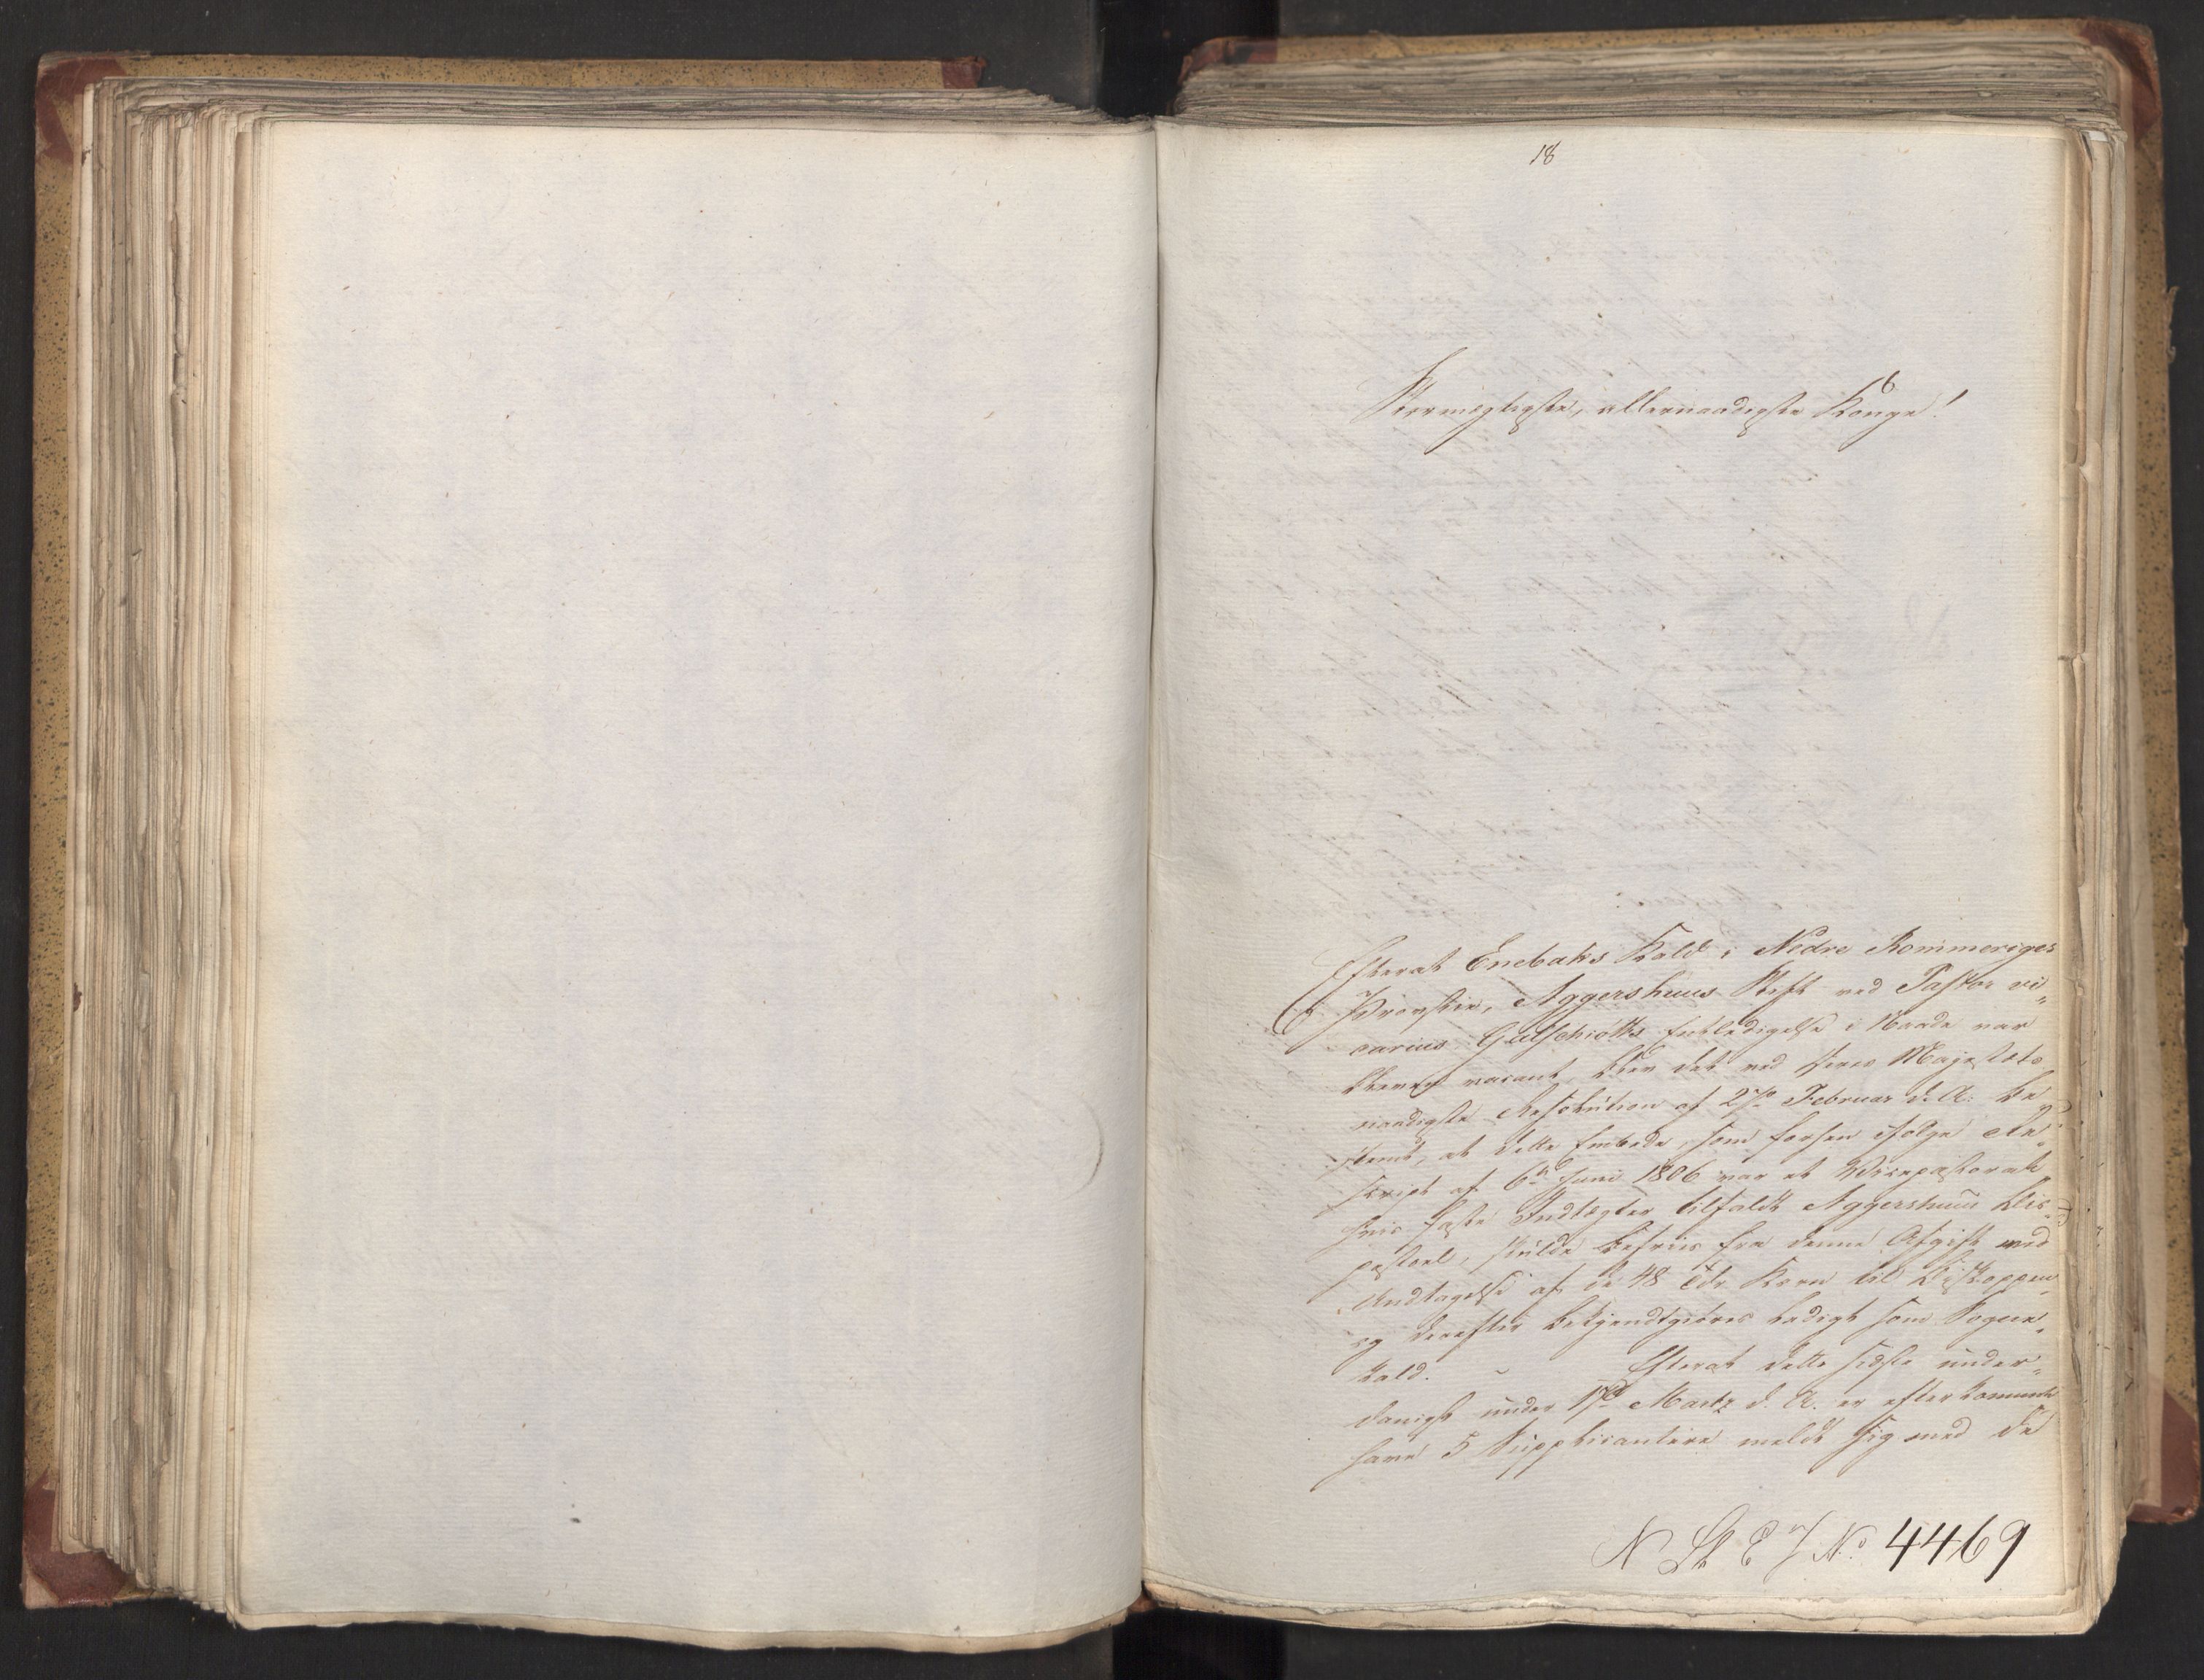 18
Stormægtigste, allernaadigste Konge!
Efterat Enebaks Kald i Nedre Rommeriges
Provstie, Aggershuus Stift ved Pastor vi„
carius Gulschiotts Entledigelse i Naade var
bleven vacant, blev det ved Deres Majestæts
naadigste Resolution af 27de Februar d. A. be„
stemt, at dette Embede, som forhen ifølge Re„
script af 6te Juni 1806 var et Vicepastorat
hvis faste Indtægter tilfaldt Aggershuus Bis„
pestoel, skulde befries fra denne Afgift med
Undtagelse af de 48 Tdr Korn til Biskoppen
og derefter bekjendtgiøres ledigt som Sogne„
kald. - Efterat dette sidste under„
danigst under 17de Martz d. A. er efterkommet
have 5 Supplicantere meldt sig med de
N St E J No 4469